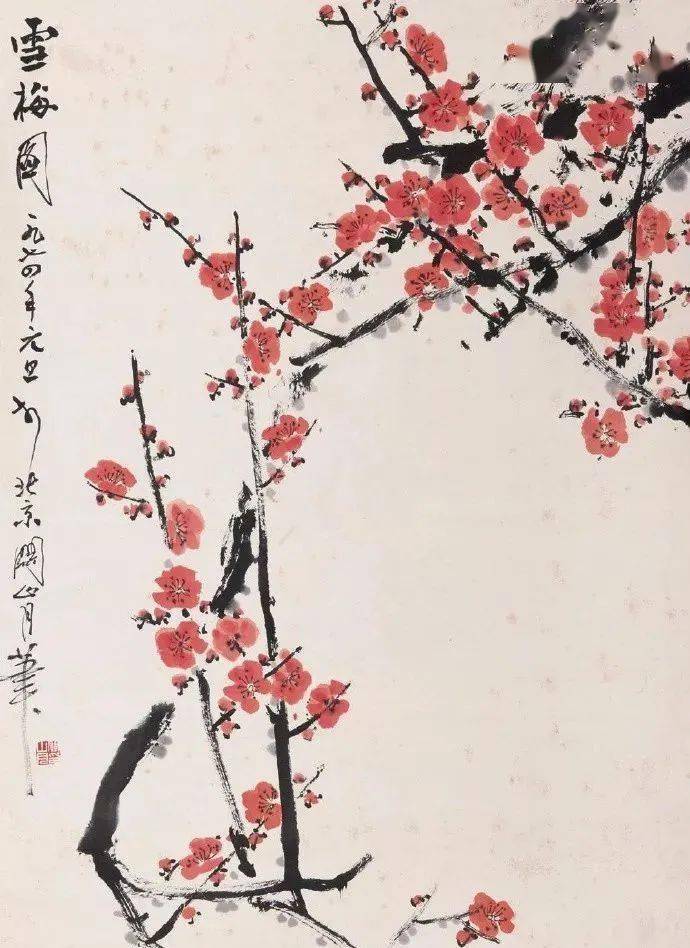 雪梅图
一九七四年元旦于北京关山月笔